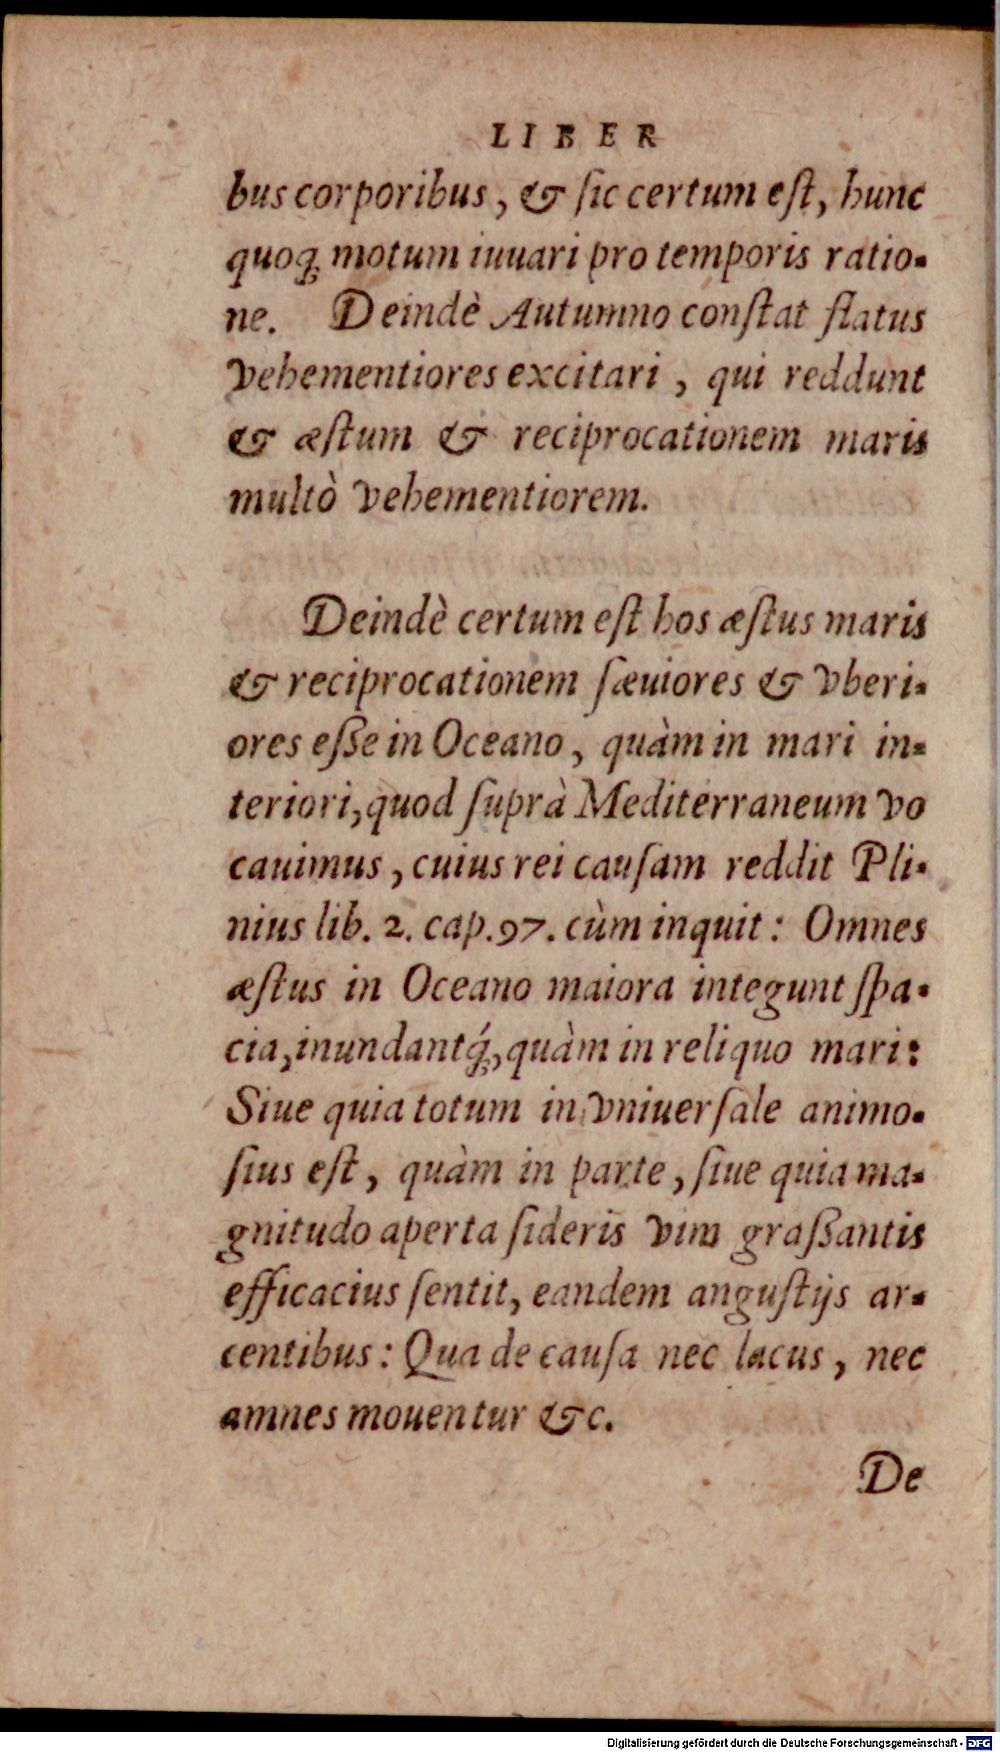 LIBER
bus corporibus, & ſic certum eſt, hunc
quoq; motum iuuari pro temporis ratio-
ne. Deindè Autumno conſtat flatus
vehementiores excitari, qui reddunt
& æſtum & reciprocationem maris
multò vehementiorem.
Deindè certum eſt hos æſtus maris
& reciprocationem ſæuiores & vberi-
ores eſſe in Oceano, quàm in mari in-
teriori, quod ſuprà Mediterraneum vo
cauimus, cuius rei cauſam reddit Pli-
nius lib. 2. cap. 97. cùm inquit: Omnes
æſtus in Oceano maiora integunt ſpa-
cia, inundantq́;, quàm in reliquo mari:
Siue quia totum in vniuerſale animo-
ſius eſt, quàm in parte, ſiue quia ma-
gnitudo aperta ſideris vim graſſantis
efficacius ſentit, eandem anguſtijs ar-
centibus: Qua de cauſa nec lacus, nec
amnes mouentur &c.
De
Digitalisierung gefördert durch die Deutsche Forschungsgemeinschaft - DFG